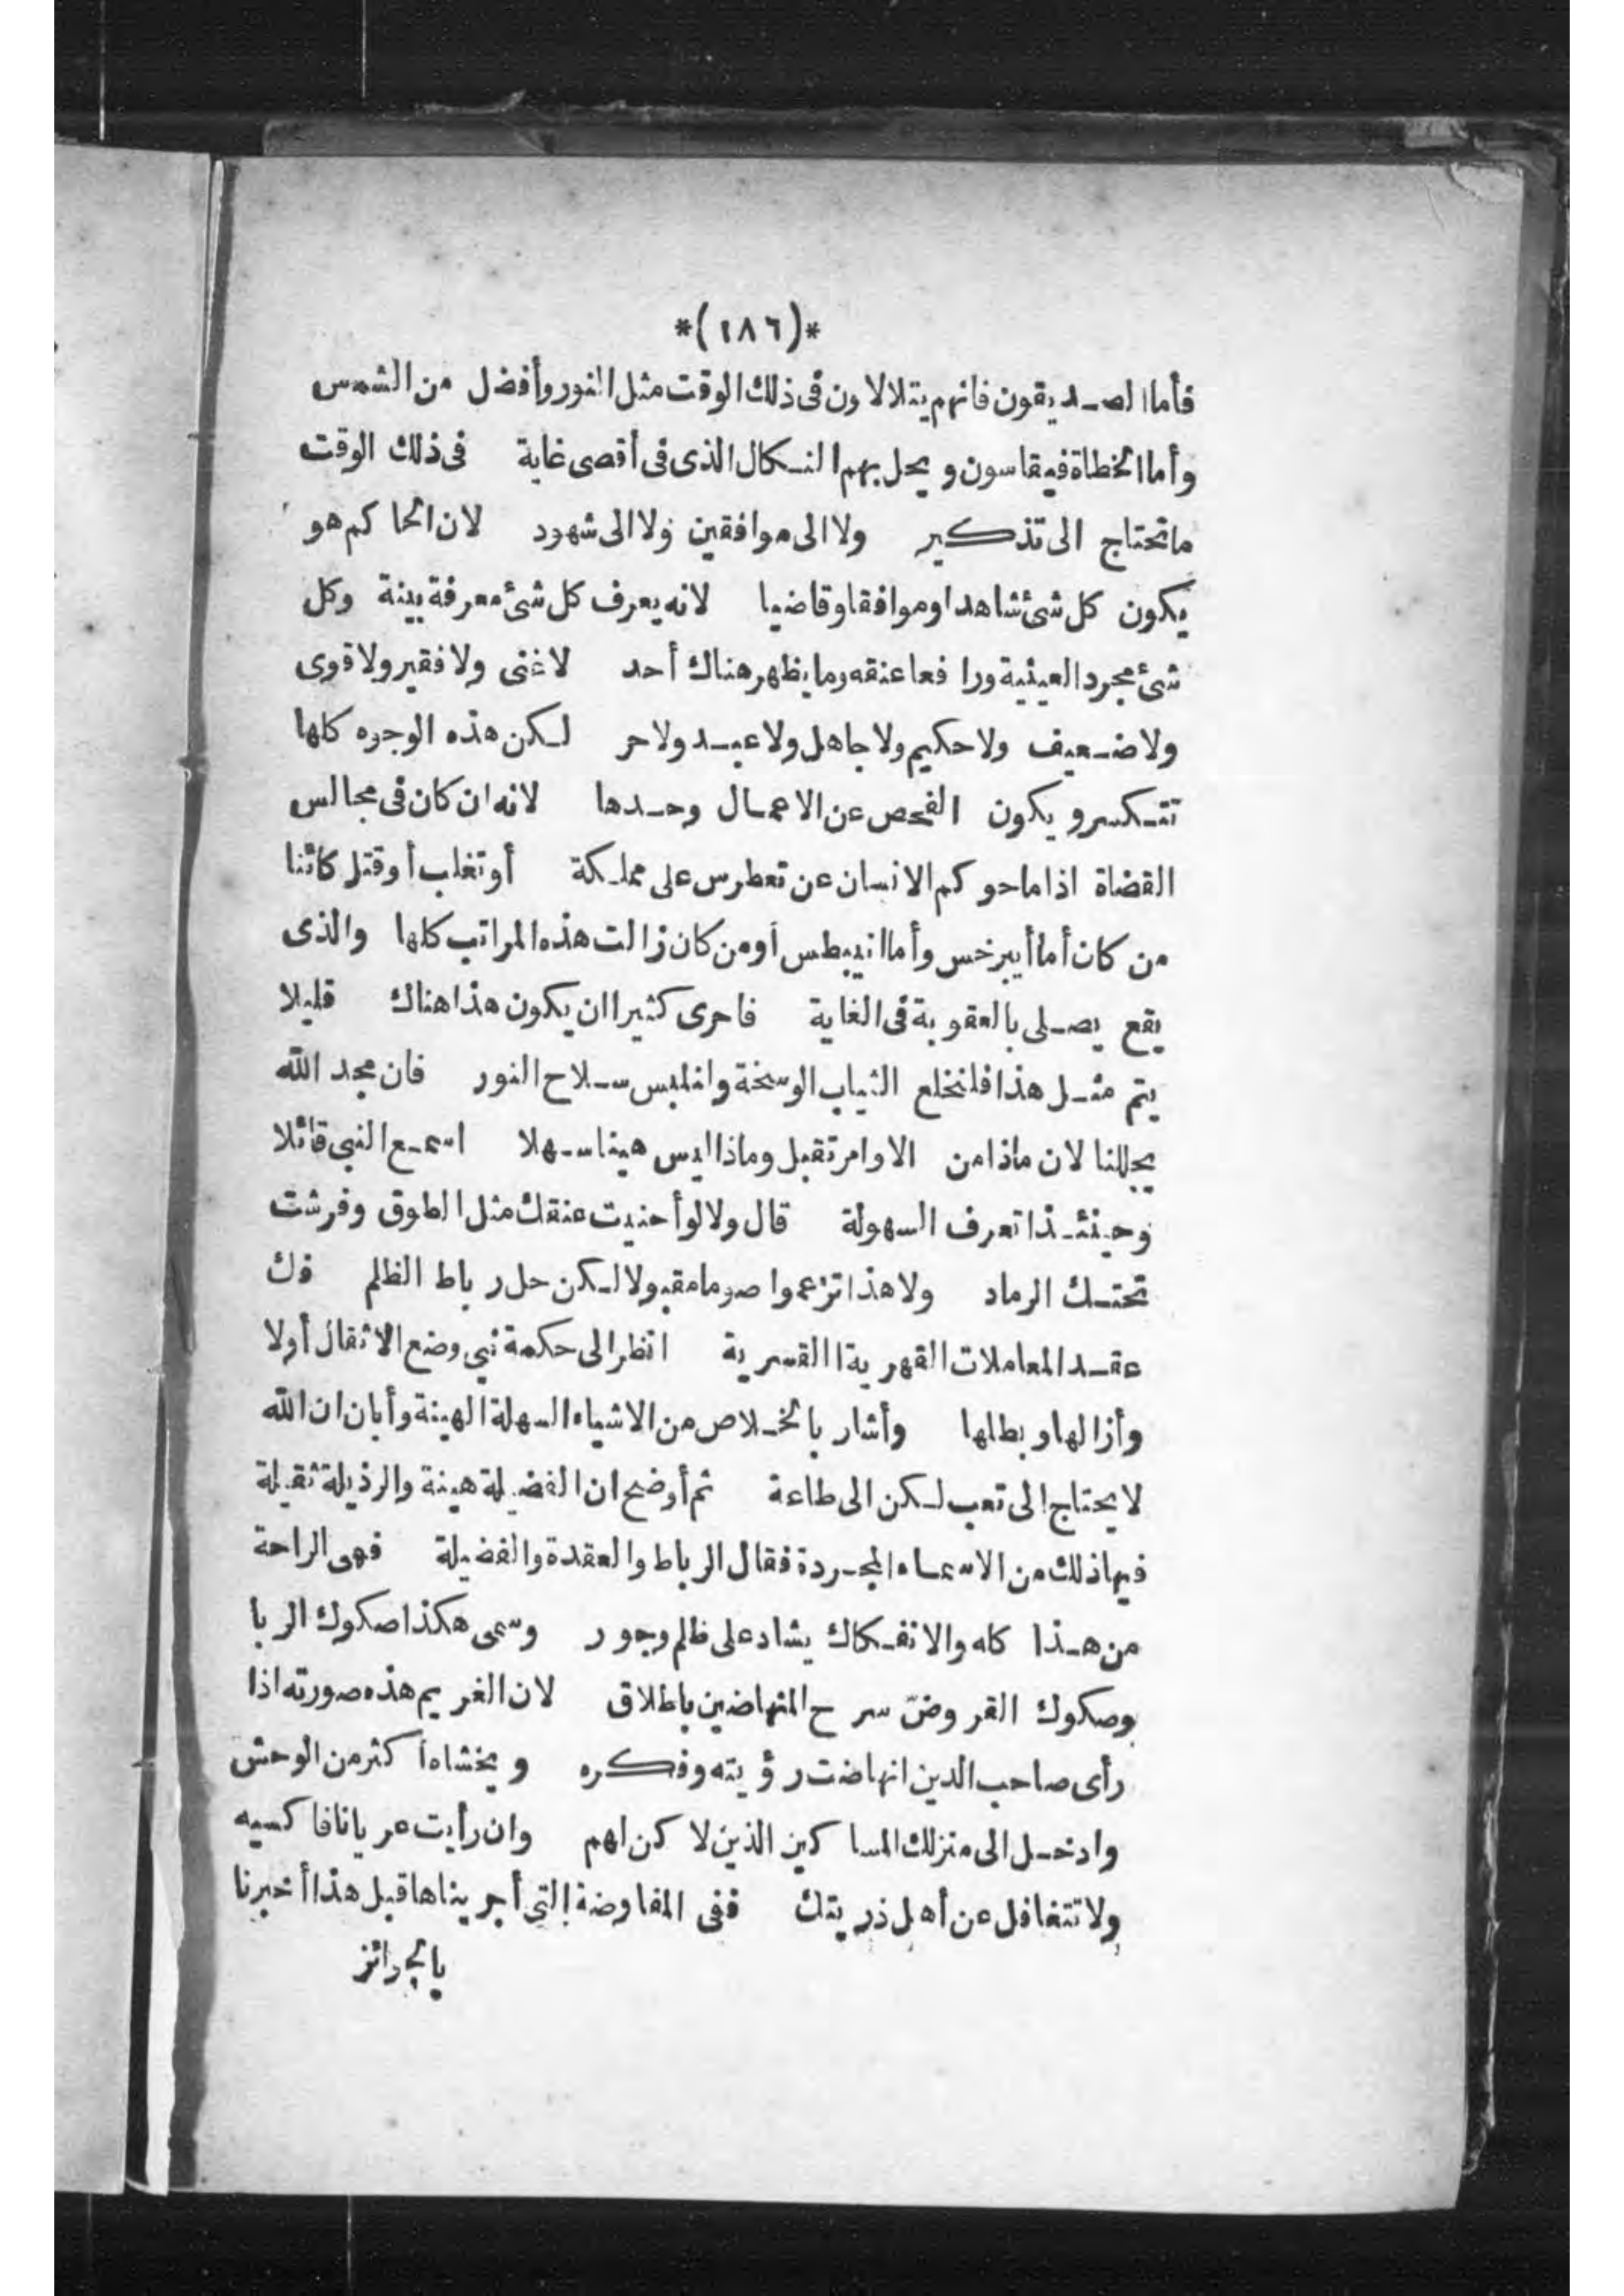 *(١٨٦)*
فأما الصديقون فانهم يتلالاون فى ذلك الوقت مثل النور وأفضل من الشمس
وأما الخطاة فيقاسون ويحل بهم النكال الذى فى أقصى غاية فى ذلك الوقت
ماتحتاج الى تذكير ولا الى موافقين ولا الى شهود لان الحاكم هو
يكون كل شئ شاهدا وموافقا وقاضيا لانه يعرف كل شئ معرفة بينة وكل
شئ مجرد العينية ورافعا عنقه وما يظهر هناك أحد لاغنى ولا فقير ولا قوى
ولا ضعيف ولا حكيم ولا جاهل ولا عبد ولا حر لكن هذه الوجوه كلها
تتكسر ويكون الفحص عن الاعمال وحدها لانه ان كان فى مجالس
القضاة اذا ما حوكم الانسان عن تعطرس على مملكة أو تغلب أو قتل كائنا
من كان أما أيبرخس وأما انيبطس أو من كان زالت هذه المراتب كلها والذى
يقع يصلى بالعقوبة فى الغاية فاحرى كثيرا ان يكون هذا هناك قليلا
يتم مثل هذا فلنخلع الثياب الوسخة وانلبس سلاح النور فان مجد الله
يجللنا لان ماذا من الاوامر تقبل وماذا ليس هينا سهلا اسمع النبى قائلا
وحينئذا تعرف السهولة قال ولا لو أحنيت عنقك مثل الطوق وفرشت
تحتك الرماد ولا هذا تزعموا صوما مقبولا لكن حل رباط الظلم فك
عقد المعاملات القهرية القسرية انظر الى حكمة نبى وضع الاثقال أولا
وأزالها وبطلها وأشار بالخلاص من الاشياء السهلة الهينة وأبان ان الله
لا يحتاج الى تعب لكن الى طاعة ثم أوضح ان الفضيلة هينة والرذيلة ثقيلة
فيها ذلك من الاسماء المجردة فقال الرباط والعقدة والفضيلة فهى الراحة
من هذا كله والانفكاك يشاد على ظلم وجور وسمى هكذا صكوك الربا
وصكوك القروض سرح المنهاضين باطلاق لان الغريم هذه صورته اذا
رأى صاحب الدين انهاضت رؤيته وفكره ويخشاه أكثر من الوحش
وادخل الى منزلك المساكين الذين لا كن لهم وان رأيت عريانا فاكسيه
ولا تتغافل عن أهل ذريتك ففى المفاوضة التى أجريناها قبل هذا أخبرنا
بالجرائز